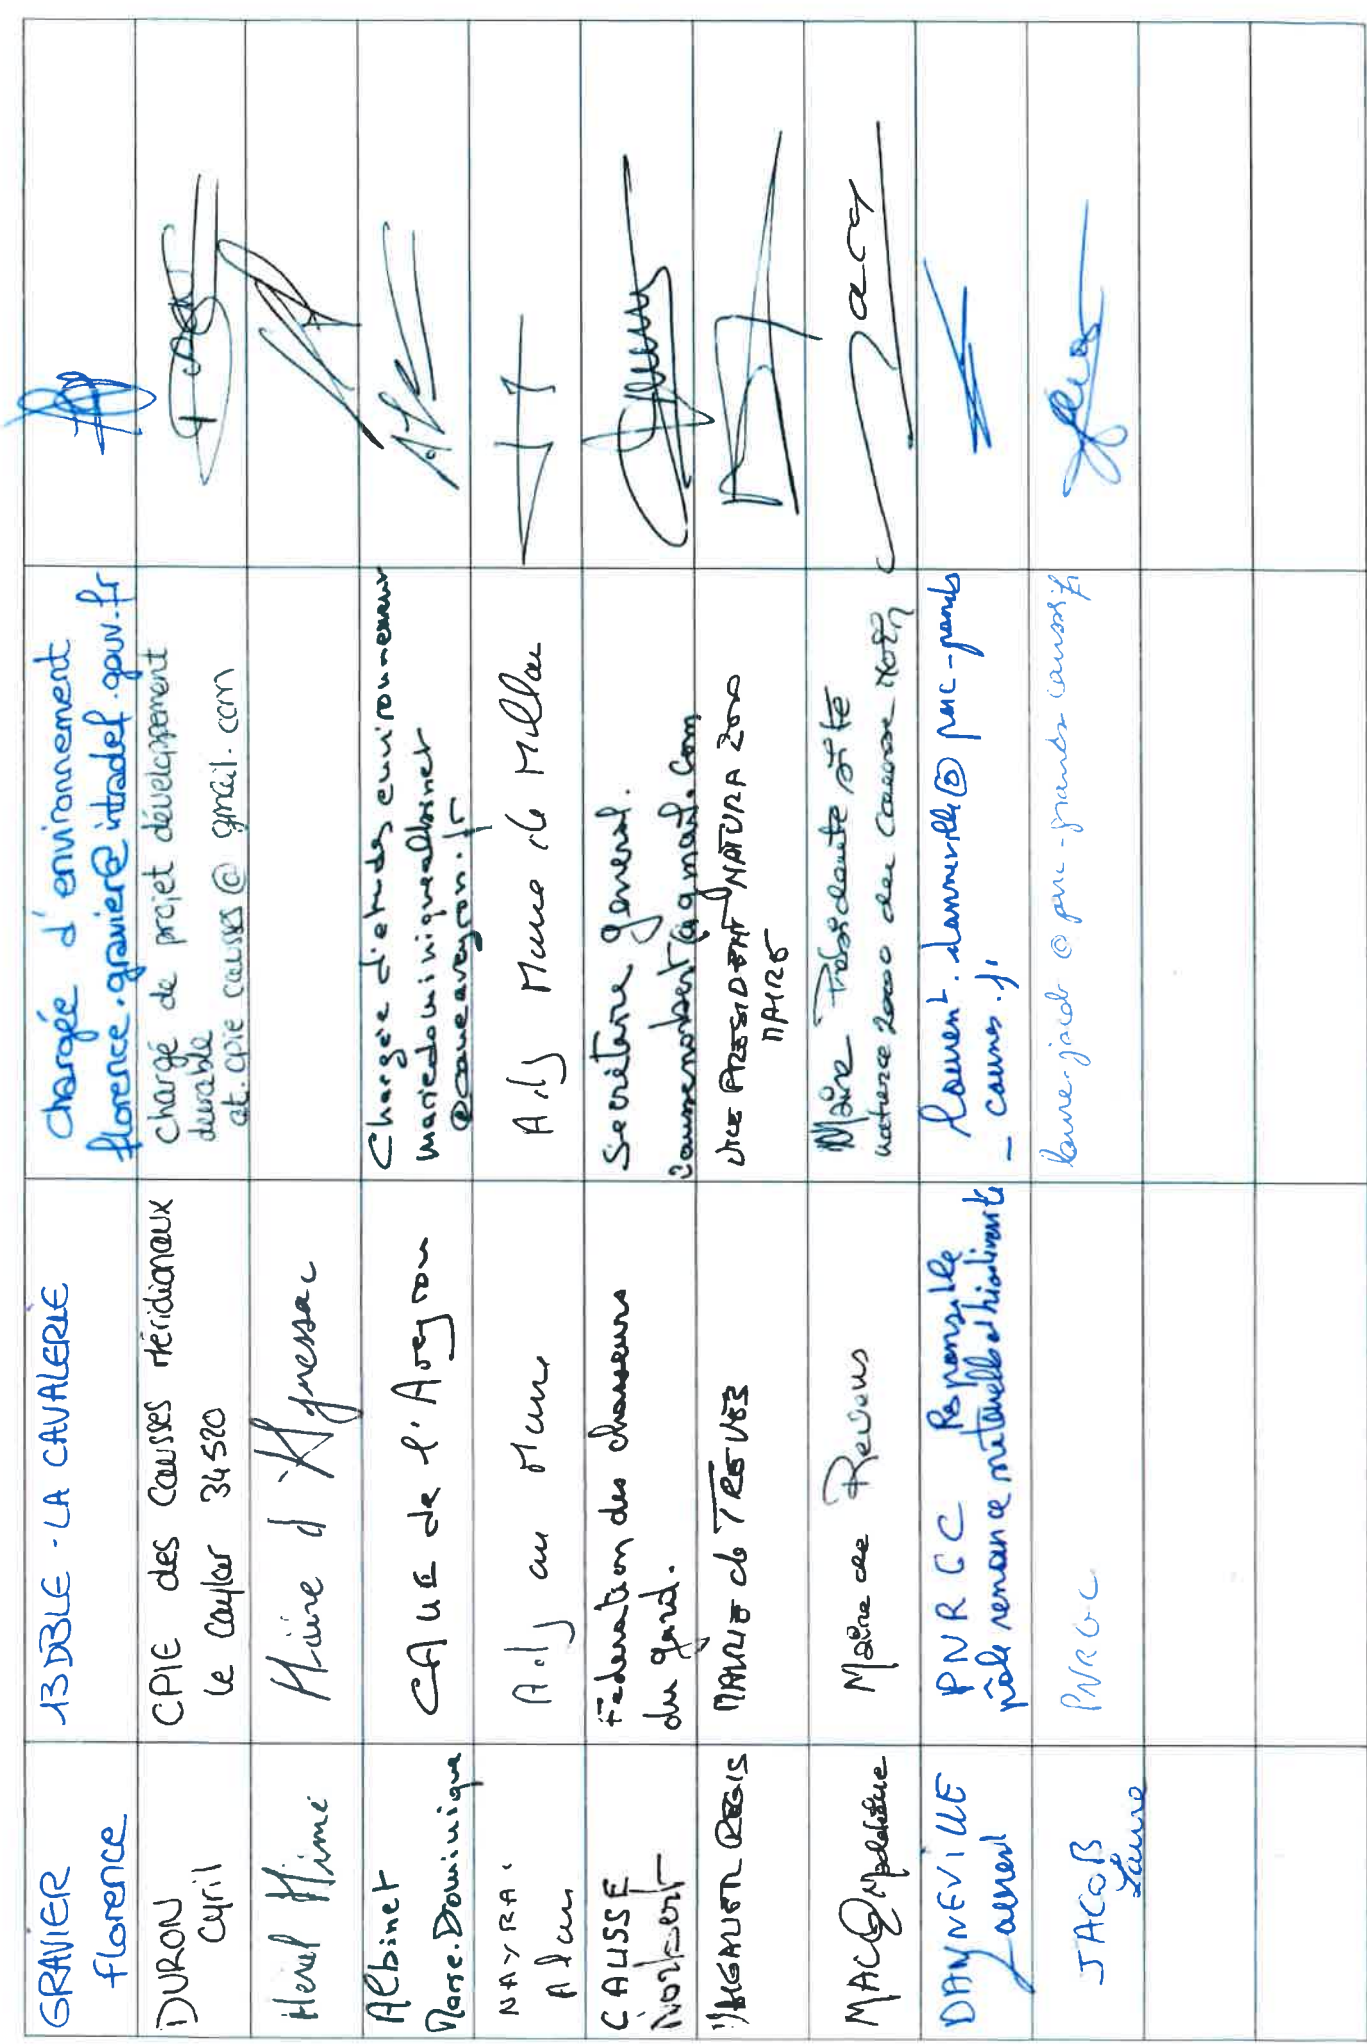 GRAVIER
florence
13 DBLE - LA CAVALERIE
Chargée d'environnement
florence.gravier@intradef.gouv.fr
DURON
Cyril
CPIE des Causses Méridionaux
Le Caylar 34520
Chargé de projet développement
durable
at.cpie causses @ gmail.com
Mimé
Maire d'
Albinet
Marie.Dominique
CAUE de l'Aveyron
Chargée d'etudes environnement
mariedominiquealbinet
@caueaveyron.fr
NAYRAC
Alan
Adj au Maire
Adj Maire de Millau
CAUSSE
Norbert
Federation des chasseurs
du Gard.
Secrétaire général.
caussenorbert@gmail.com
REGIS
MAIRIE de TREVES
VICE PRESIDENT NATURA 2000
MAIRE
MACQ
Maire de Revens
Maire Présidente site
natura 2000 du Causse Noir
DANNEVILLE
Laurent
PNRGC Responsable
pôle ressource naturelle et biodiversité
laurent.danneville@parc-grands
-causses.fr
JACOB
Laure
PNRGC
laure.jacob@parc-grands causses.fr